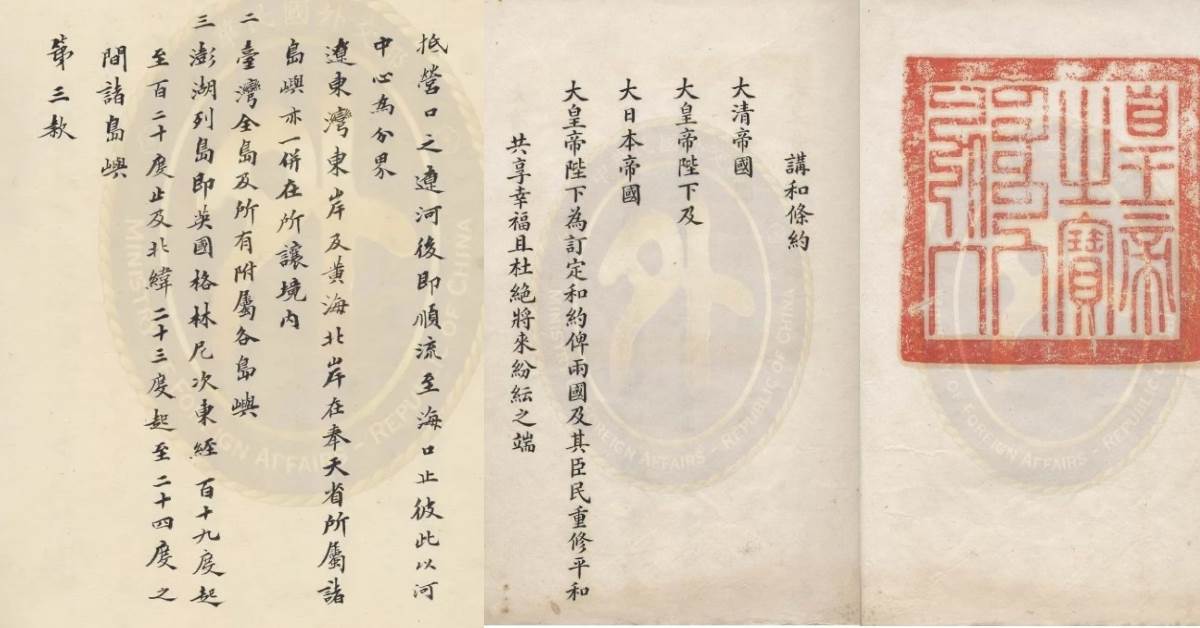 抵營口之遼河後即順流至海口止彼此以河
中心為分界
遼東灣東岸及黃海北岸在奉天省所屬諸
島嶼亦一併在所讓境內
二 臺灣全島及所有附屬各島嶼
三 澎湖列島即英國格林尼次東經百十九度起
至百二十度止及北緯二十三度起至二十四度之
間諸島嶼
第三款
講和條約
大清帝國
大皇帝陛下及
大日本帝國
大皇帝陛下為訂定和約俾兩國及其臣民重修平和
共享幸福且杜絕將來紛紜之端
皇帝
之寶
FOREIGN AFFAIRS - REPUBLIC OF CHINA
FOREIGN AFFAIRS - REPUBLIC OF CHINA
FOREIGN AFFAIRS - REPUBLIC